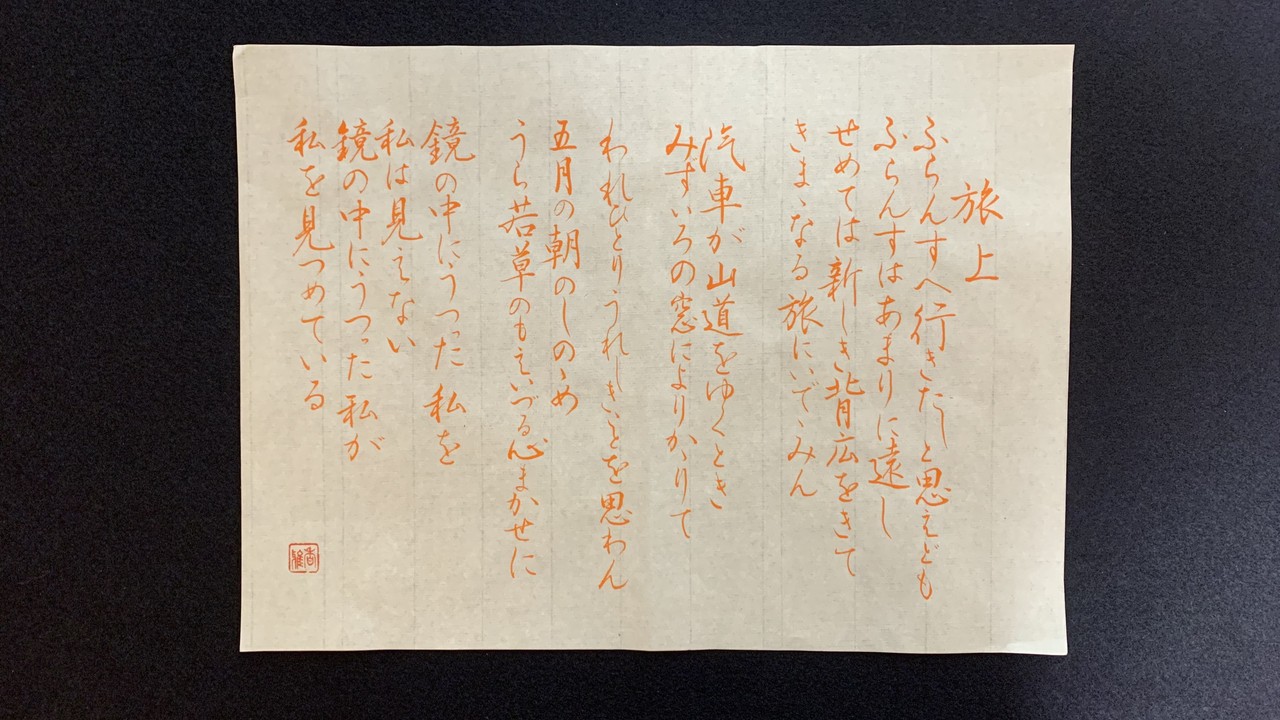 旅上
ふらんすへ行きたしと思えども
ふらんすはあまりに遠し
せめては新しき背広をきて
きまゝなる旅にいでゝみん
汽車が山道をゆくとき
みずいろの窓によりかゝりて
われひとりうれしきことを思わん
五月の朝のしのゝめ
うら若草のもえいづる心まかせに
鏡の中にうつった私を
私は見えない
鏡の中にうつった私が
私を見つめている
香雅